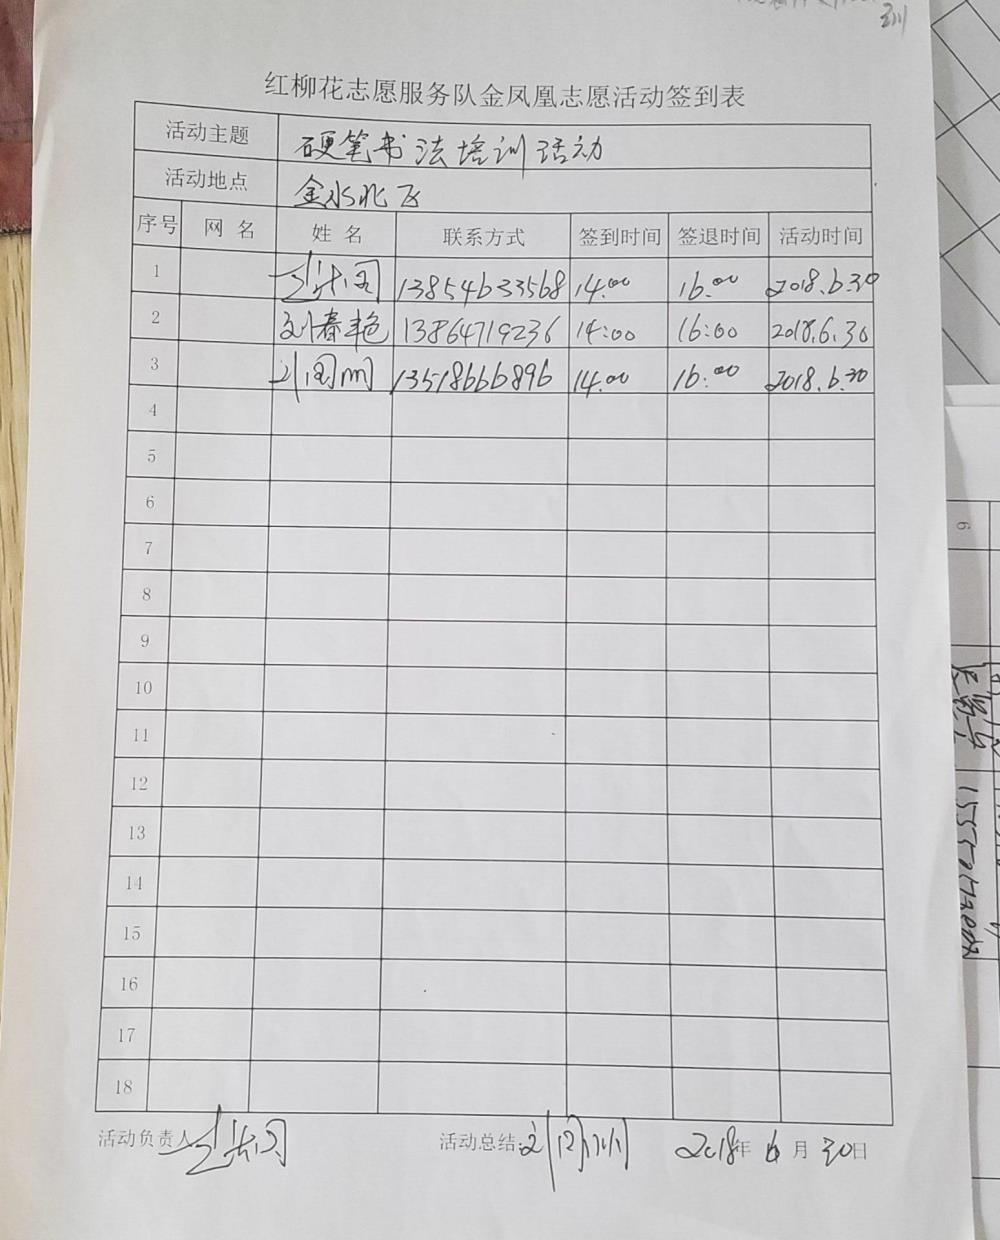 红柳花志愿服务队金凤凰志愿活动签到表
活动主题 硬笔书法培训活动
活动地点 金水北区
序号 网名 姓名 联系方式 签到时间 签退时间 活动时间
1 13854633568 14:00 16:00 2018.6.30
2 刘春艳 13864719236 14:00 16:00 2018.6.30
3 13518666896 14:00 16:00 2018.6.30
4
5
6
7
8
9
10
11
12
13
14
15
16
17
18
活动负责人 活动总结: 2018年 6月 30日
6